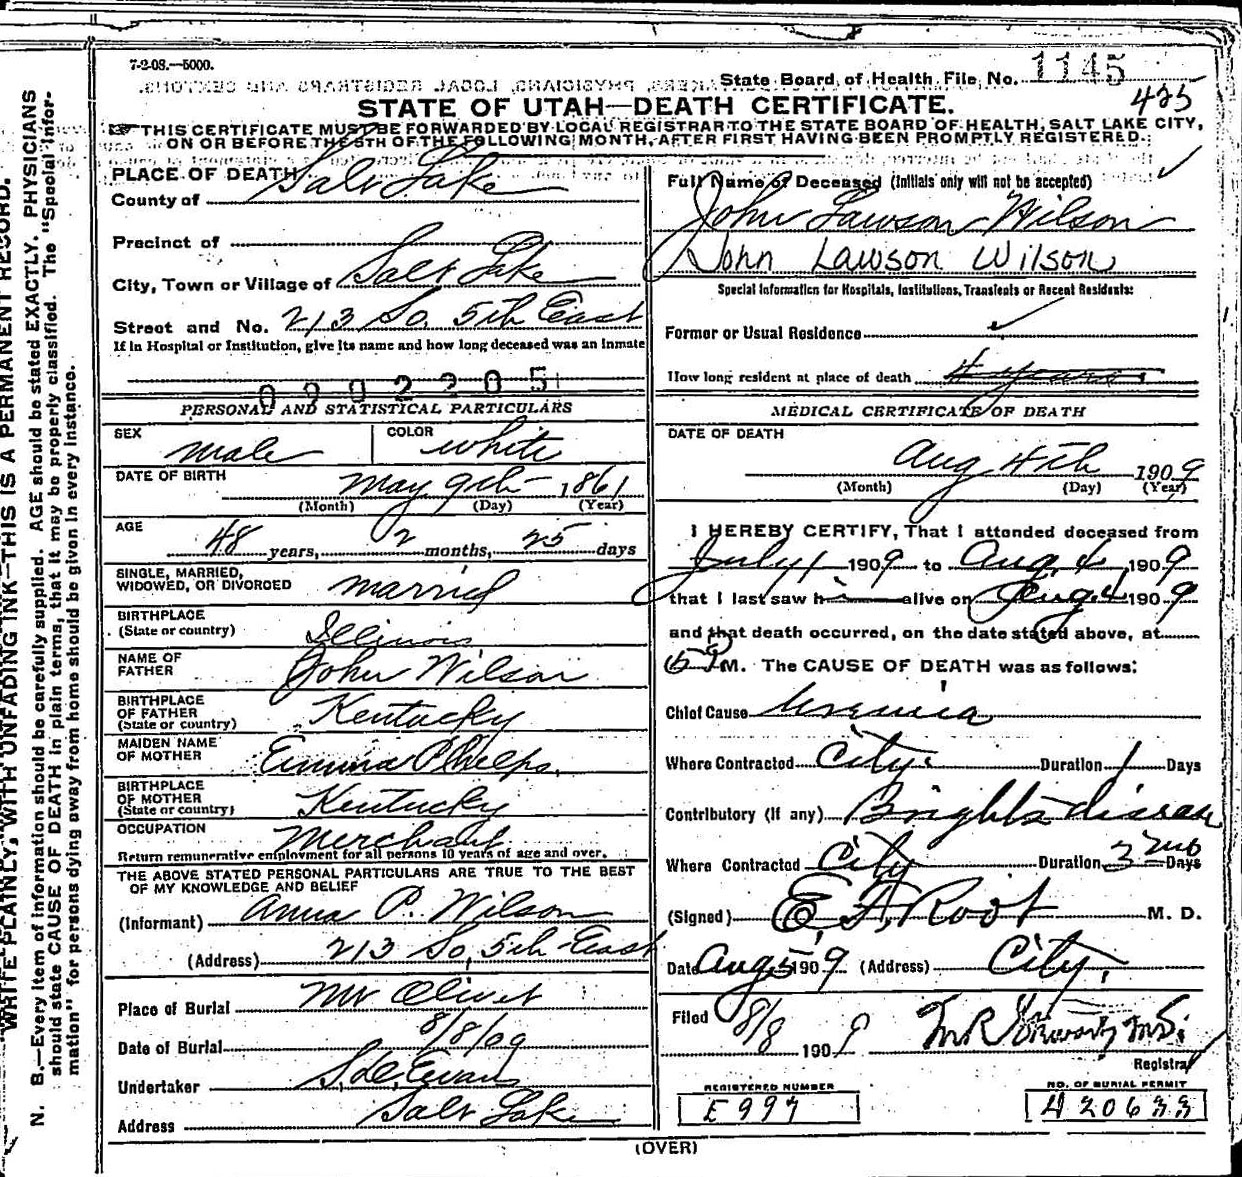 7-2-08.—5000.
State Board of Health File No. 1145
425
STATE OF UTAH—DEATH CERTIFICATE.
THIS CERTIFICATE MUST BE FORWARDED BY LOCAL REGISTRAR TO THE STATE BOARD OF HEALTH, SALT LAKE CITY,
ON OR BEFORE THE 5TH OF THE FOLLOWING MONTH, AFTER FIRST HAVING BEEN PROMPTLY REGISTERED.
WRITE PLAINLY, WITH UNFADING INK—THIS IS A PERMANENT RECORD.
N. B.—Every item of information should be carefully supplied. AGE should be stated EXACTLY. PHYSICIANS
should state CAUSE OF DEATH in plain terms, that it may be properly classified. The "Special Infor-
mation" for persons dying away from home should be given in every instance.
PLACE OF DEATH
County of Salt Lake
Precinct of
City, Town or Village of Salt Lake
Street and No. 213 So. 5th East
If in Hospital or Institution, give its name and how long deceased was an inmate
0902205
PERSONAL AND STATISTICAL PARTICULARS
SEX male
COLOR white
DATE OF BIRTH May 9th 1861
(Month) (Day) (Year)
AGE
48 years, 2 months, 25 days
SINGLE, MARRIED,
WIDOWED, OR DIVORCED married
BIRTHPLACE
(State or country) Illinois
NAME OF
FATHER John Wilson
BIRTHPLACE
OF FATHER
(State or country) Kentucky
MAIDEN NAME
OF MOTHER Emma Phelps.
BIRTHPLACE
OF MOTHER
(State or country) Kentucky
OCCUPATION Merchant
Return remunerative employment for all persons 10 years of age and over.
THE ABOVE STATED PERSONAL PARTICULARS ARE TRUE TO THE BEST
OF MY KNOWLEDGE AND BELIEF
(Informant) Anna P. Wilson
(Address) 213 So, 5th East
Place of Burial Mt Olivet
Date of Burial 8/8/09
Undertaker Evans
Address Salt Lake
Full Name of Deceased (Initials only will not be accepted)
John Lawson Wilson
John Lawson Wilson
Special Information for Hospitals, Institutions, Transients or Recent Residents:
Former or Usual Residence
How long resident at place of death 4 years
MEDICAL CERTIFICATE OF DEATH
DATE OF DEATH
Aug 4th 1909
(Month) (Day) (Year)
I HEREBY CERTIFY, That I attended deceased from
July 1 1909 to Aug. 4 1909
that I last saw h alive on Aug. 4 1909
and that death occurred, on the date stated above, at
M. The CAUSE OF DEATH was as follows:
Chief Cause Uremia
Where Contracted City. Duration 1 Days
Contributory (if any) Brights disease
Where Contracted City Duration 3 mo Days
(Signed) E. F. Root M. D.
Date Aug 5 1909 (Address) City.
Filed 8/8 1909
Registrar
REGISTERED NUMBER
E 997
NO. OF BURIAL PERMIT
A 20633
(OVER)